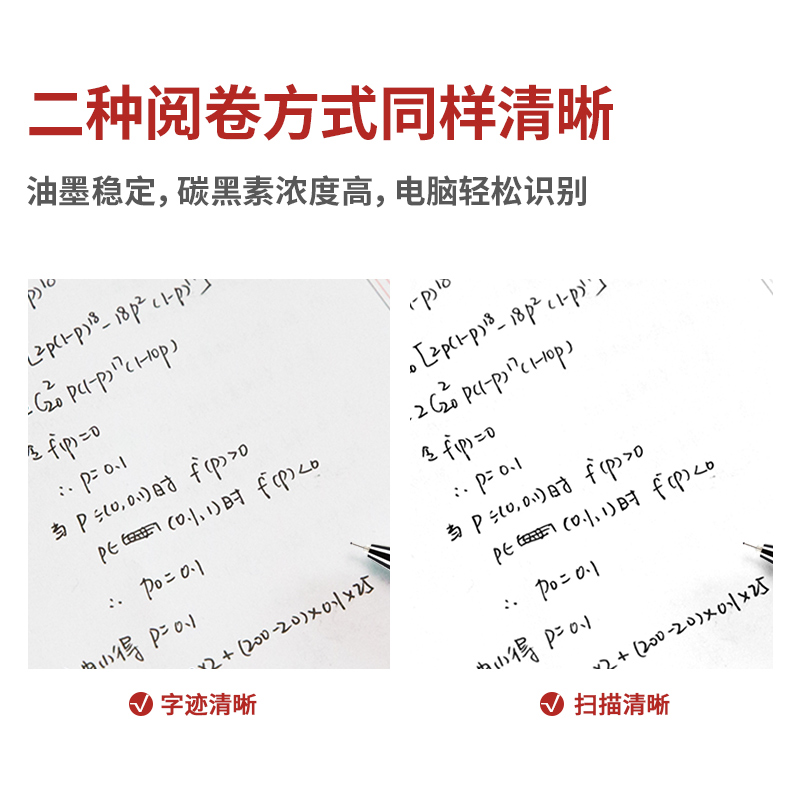 二种阅卷方式同样清晰
油墨稳定，碳黑素浓度高，电脑轻松识别
p)¹⁰
[2p(1-p)¹⁸ - 18p²(1-p)¹⁷]
C²₂₀ p(1-p)¹⁷(1-10p)
令 f'(p)=0
∴ p=0.1
当 P∈(0,0.1)时 f'(p)>0
p∈ (0.1,1)时 f'(p)<0
∴ p₀=0.1
p=0.1
×2+(200-20)×0.1×25
-p)¹⁰
[2p(1-p)¹⁸ - 18p²(1-p)¹⁷]
2C²₂₀ p(1-p)¹⁷(1-10p)
令 f'(p)=0
∴ p=0.1
当 P∈(0,0.1)时 f'(p)>0
p∈ (0.1,1)时 f'(p)<0
∴ p₀=0.1
p=0.1
×2+(200-20)×0.1×25
字迹清晰
扫描清晰